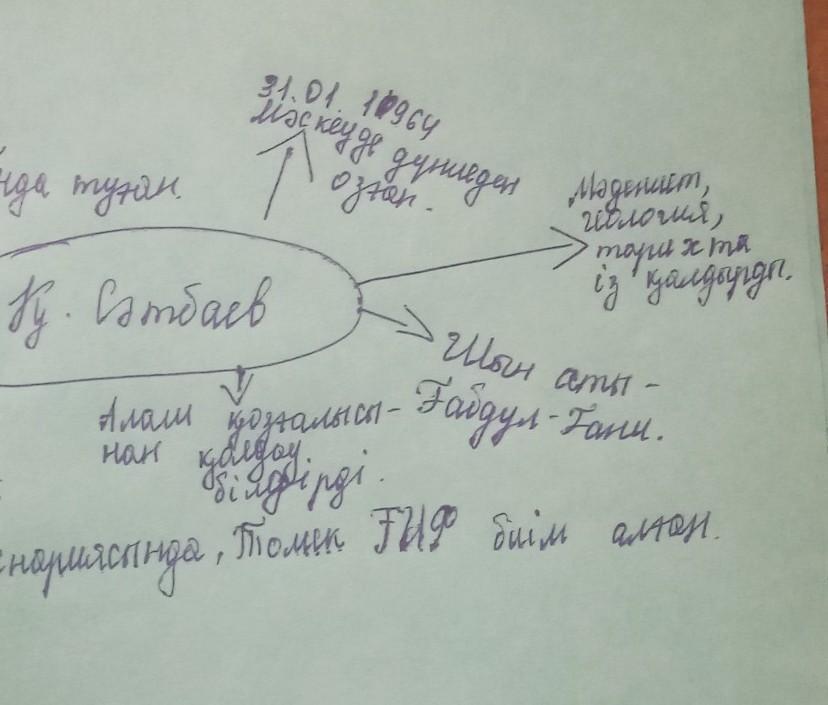 31.01.1964
Мәскеуде дүниеден
озған.
нда туған.
Мәдениет,
геология,
тарихта
із қалдырды.
Қ. Сәтбаев
Шын аты -
Ғабдул-Ғани.
Алаш қозғалысы-
нан қолдау
білдірді.
нариясында, Томск ГИФ білім алған.